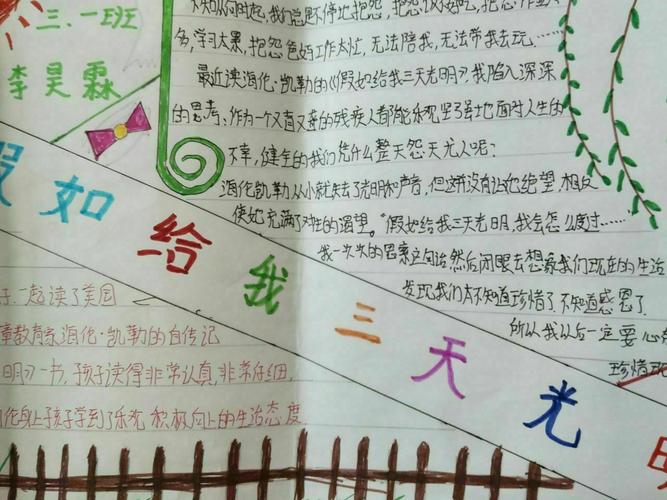 三.一班
李昊霖
不知从何时起,我们总是不停地抱怨,抱怨饭
多,学习太累,抱怨爸妈工作太忙,无法陪我,无法带我去玩……
最近读海伦·凯勒的《假如给我三天光明》,我陷入深深
的思考、作为一个又盲又聋的残疾人都能乐观坚强地面对人生的
不幸,健全的我们凭什么整天怨天尤人呢?
海伦凯勒从小就失去了光明和声音,但这并没有让她绝望,相反
使她充满了对生的渴望。“假如给我三天光明,我会怎么度过……”
我一次次的思索这句话然后闭眼去想象我们现在的生活
发现我们太不知道珍惜了,不知道感恩了
所以我以后一定要心
珍惜现
假如给我三天光明
子一起读了美国
教育家海伦·凯勒的自传记
明》一书,孩子读得非常认真,非常仔细,
伦身上孩子学到了乐观 积极向上的生活态度